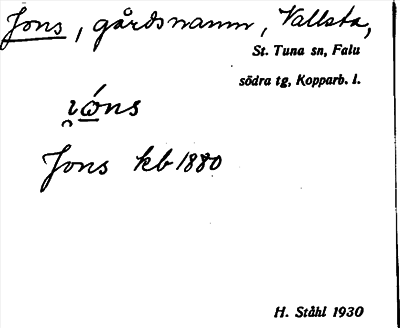 Jons, gårdsnamn, Vallsta,
St. Tuna sn, Falu
södra tg, Kopparb. l.
ı̯ώns
Jons kb 1880
H. Ståhl 1930